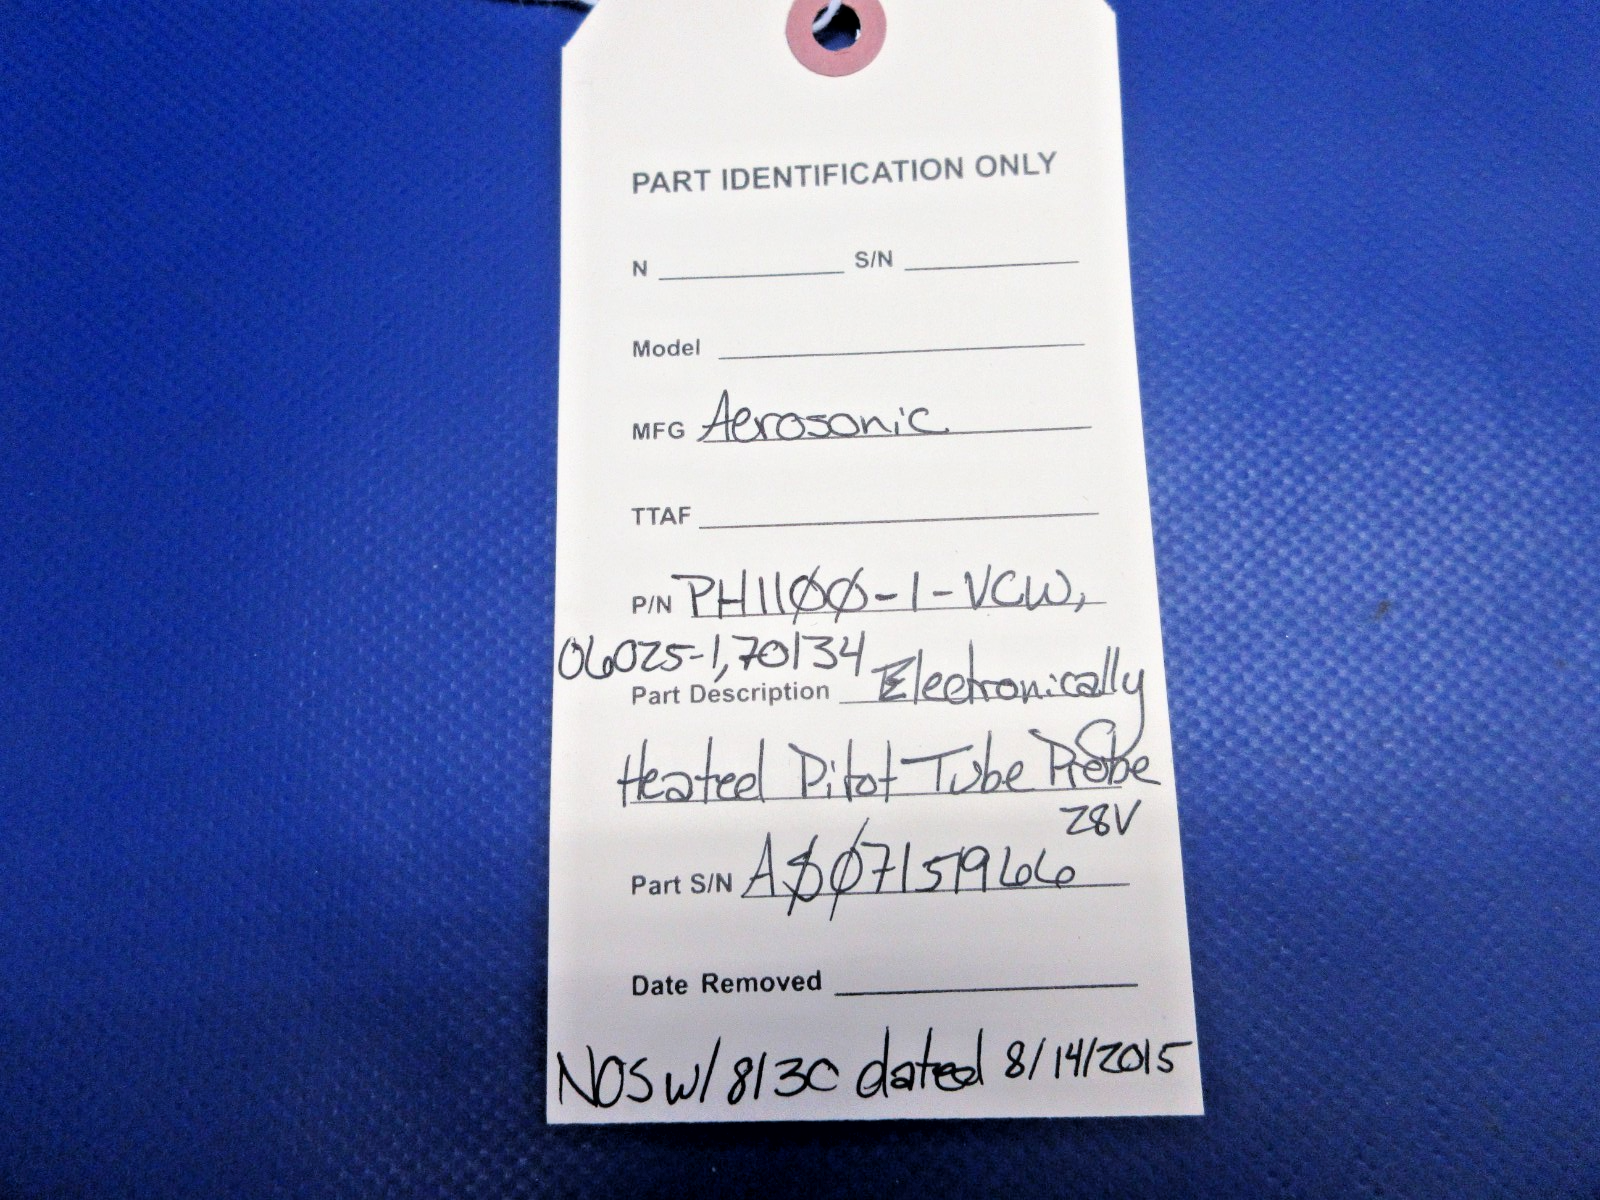 PART IDENTIFICATION ONLY
N ____________ S/N ____________
Model
MFG Aerosonic
TTAF
P/N PH1100-1-VCW,
06025-1, 70134
Part Description Electronically
Heated Pitot Tube Probe
28V
Part S/N
Date Removed
NOS w/ 8130 dated 8/14/2015